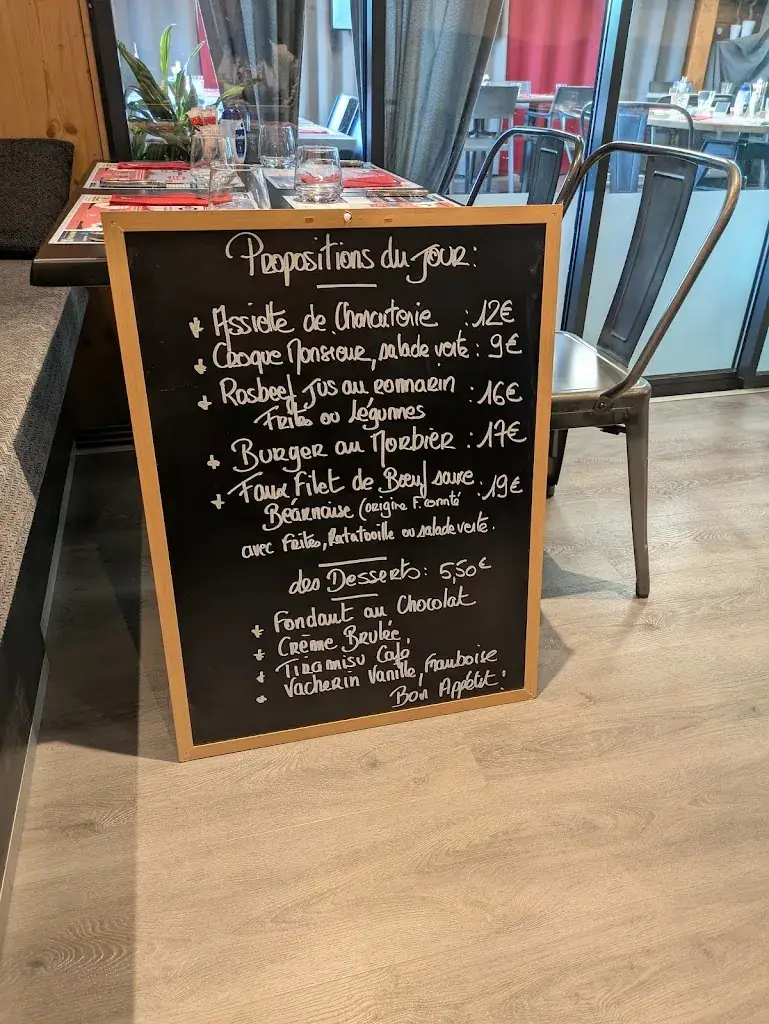 Propositions du jour:
+ Assiette de Charcuterie : 12€
+ Croque Monsieur, salade verte : 9€
+ Rosbeef jus au romarin : 16€
Frites ou légumes
+ Burger au Morbier : 17€
+ Faux Filet de Bœuf sauce : 19€
Béarnaise (origine F. comté
avec frites, Ratatouille ou salade verte.
des Desserts: 5,50€
+ Fondant au Chocolat
+ Crème Brulée,
+ Tiramisu Café
+ Vacherin Vanille, framboise
Bon Appétit!